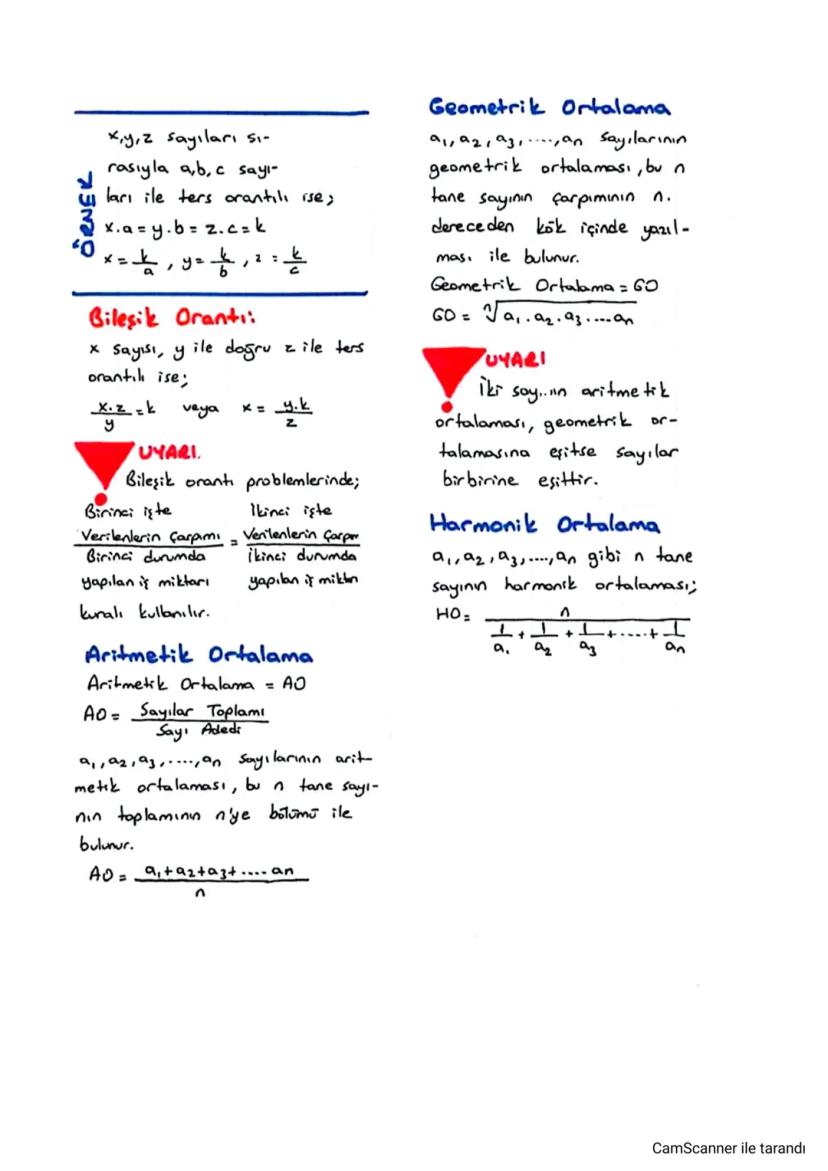 ÖRNEK
x,y,z sayıları sı-
rasıyla a,b,c sayı-
ları ile ters orantılı ise;
x.a = y.b = z.c = k
x = k/a , y = k/b , z = k/c
Bileşik Orantı:
x sayısı, y ile doğru z ile ters
orantılı ise;
x.z/y = k veya x = y.k/z
UYARI.
Bileşik orantı problemlerinde;
Birinci işte İkinci işte
Verilenlerin Çarpımı = Verilenlerin Çarpım
Birinci durumda İkinci durumda
yapılan iş miktarı yapılan iş
kuralı kullanılır.
Aritmetik Ortalama
Aritmetik Ortalama = AO
AO = Sayılar Toplamı / Sayı Adedi
a₁, a₂, a₃, ...., aₙ sayılarının arit-
metik ortalaması, bu n tane sayı-
nın toplamının n'ye bölümü ile
bulunur.
AO = a₁+a₂+a₃+ .... aₙ / n
Geometrik Ortalama
a₁, a₂, a₃, ...., aₙ sayılarının
geometrik ortalaması, bu n
tane sayının çarpımının n.
dereceden kök içinde yazıl-
ması ile bulunur.
Geometrik Ortalama = GO
GO = ⁿ√a₁.a₂.a₃....aₙ
UYARI
İki aritmetik
ortalaması, geometrik or-
talamasına eşitse sayılar
birbirine eşittir.
Harmonik Ortalama
a₁, a₂, a₃, ...., aₙ gibi n tane
sayının harmonik ortalaması;
HO = n / 1/a₁ + 1/a₂ + 1/a₃ + ..... + 1/aₙ
CamScanner ile tarandı